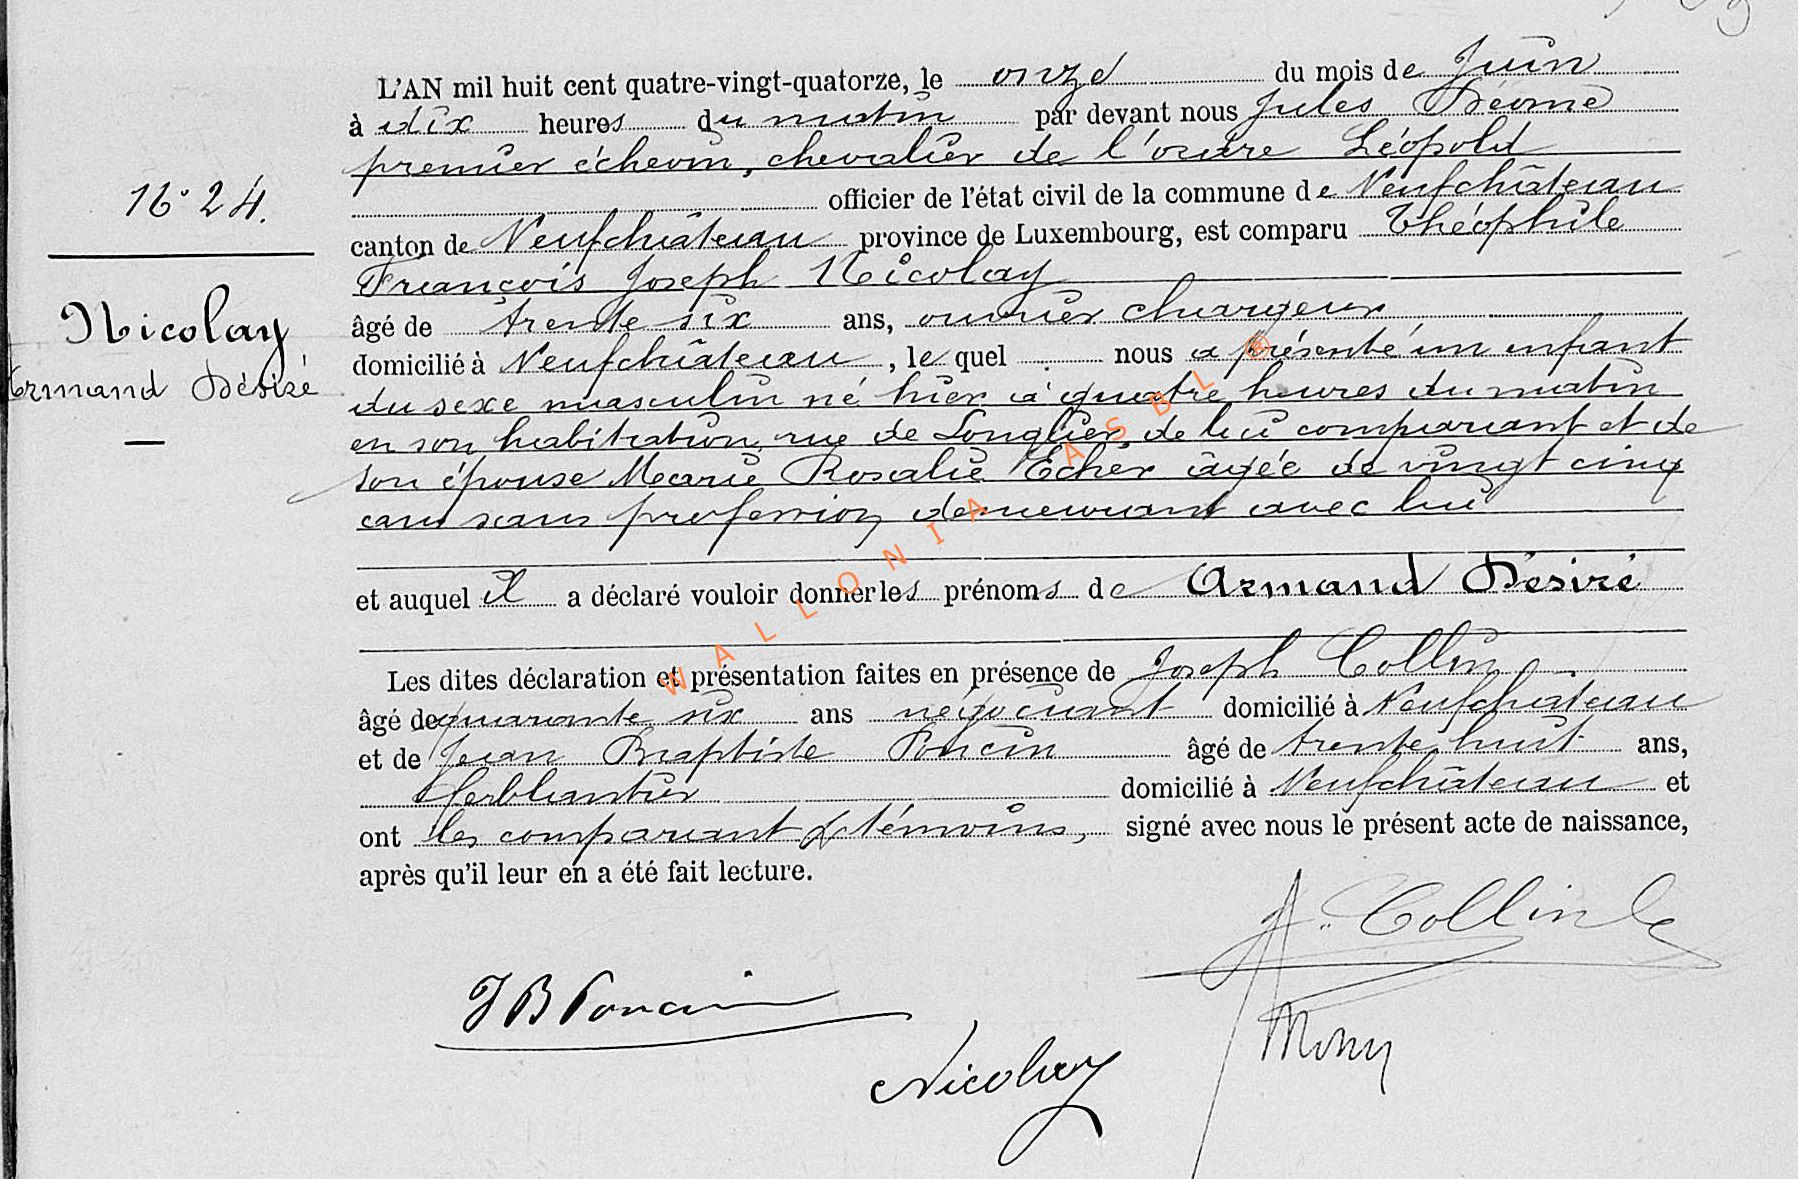 L'AN mil huit cent quatre-vingt-quatorze, le onze du mois de Juin
à dix heures du matin par devant nous Jules
premier échevin, chevalier de l'ordre Léopold
officier de l'état civil de la commune de Neufchâteau
canton de Neufchâteau province de Luxembourg, est comparu Théophile
François Joseph Nicolay
âgé de trente six ans, ouvrier chargeur
domicilié à Neufchâteau, le quel nous a présenté un enfant
du sexe masculin né hier à quatre heures du matin
en son habitation rue de Longlier, de lui comparant et de
son épouse Marie Rosalie Echer âgée de vingt cinq
ans sans profession demeurant avec lui
et auquel il a déclaré vouloir donner les prénoms de Armand Désiré
Les dites déclaration et présentation faites en présence de Joseph Collin
âgé de quarante six ans négociant domicilié à Neufchateau
et de Jean Baptiste Poncin âgé de trente huit ans,
ferblantier domicilié à Neufchâteau et
ont les comparant & témoins, signé avec nous le présent acte de naissance,
après qu'il leur en a été fait lecture.
N° 24.
Nicolay
Armand Désiré
J. Collin
JB Poncin
Nicolay
WALLONIA ASBL ®